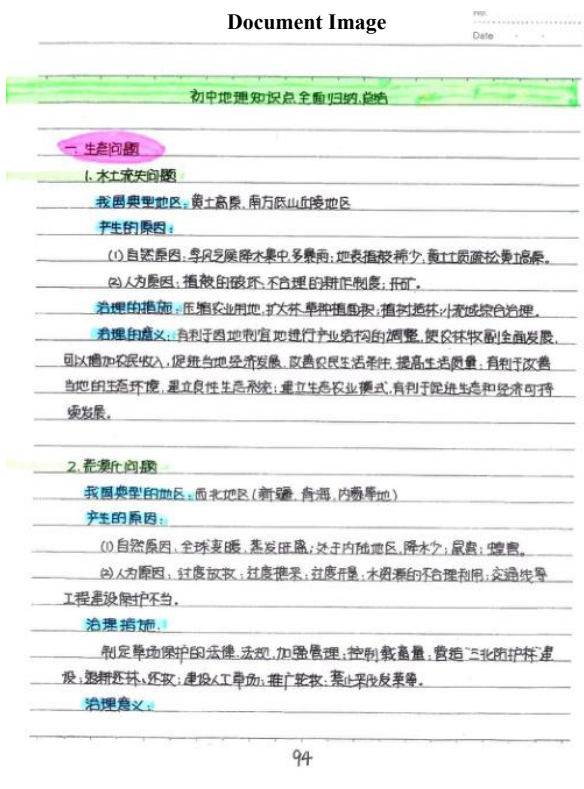 Document Image
No.
Date
初中地理知识点全面归纳总结
一. 生态问题
1. 水土流失问题
我国典型地区：黄土高原, 南方低山丘陵地区
产生的原因：
(1) 自然原因：季风气候降水集中, 多暴雨；地表植被稀少；黄土土质疏松(黄土高原。
(2) 人为原因：植被的破坏；不合理的耕作制度；开矿。
治理的措施：压缩农业用地, 扩大林、草种植面积；植树造林；小流域综合治理。
治理的意义：有利于因地制宜地进行产业结构的调整, 使农林牧副全面发展,
可以增加农民收入, 促进当地经济发展, 改善农民生活条件, 提高生活质量；有利于改善
当地的生态环境, 建立良性生态系统；建立生态农业模式, 有利于促进生态和经济可持
续发展。
2. 荒漠化问题
我国典型的地区：西北地区(新疆, 青海, 内蒙等地)
产生的原因：
(1) 自然原因, 全球变暖, 蒸发旺盛；处于内陆地区, 降水少；鼠害；蝗害。
(2) 人为原因；过度放牧；过度樵采；过度开垦；水资源的不合理利用；交通线等
工程建设保护不当。
治理措施：
制定草场保护的法律、法规, 加强管理；控制载畜量；营造"三北防护林"建
设；退耕还林、还牧；建设人工草场；推广轮牧；禁止采伐发菜等。
治理意义：
94